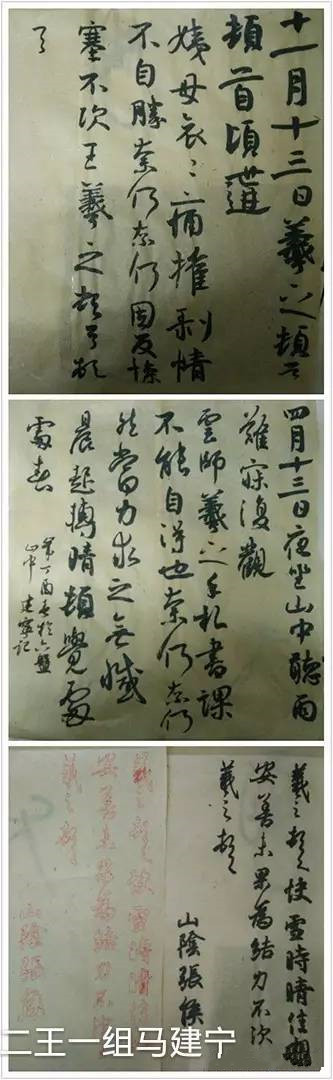 十一月十三日羲之頓首
頓首頃遘
姨母哀〻痛摧剥情
不自勝奈何奈何因反慘
塞不次王羲之頓首頓
首
四月十三日夜坐山中聽雨
難寐復觀
雲師羲之手札書課
不能自得也奈何奈何
然當力求之無憾
晨起轉晴頓覺
丁酉春於六盤
山中 建寧記
羲之頓首快雪時晴佳想
安善未果為結力不次
羲之頓首
山陰張侯
羲之頓首快雪時晴佳
安善未果為結力不次
羲之頓首
山陰張侯
二王一组马建宁